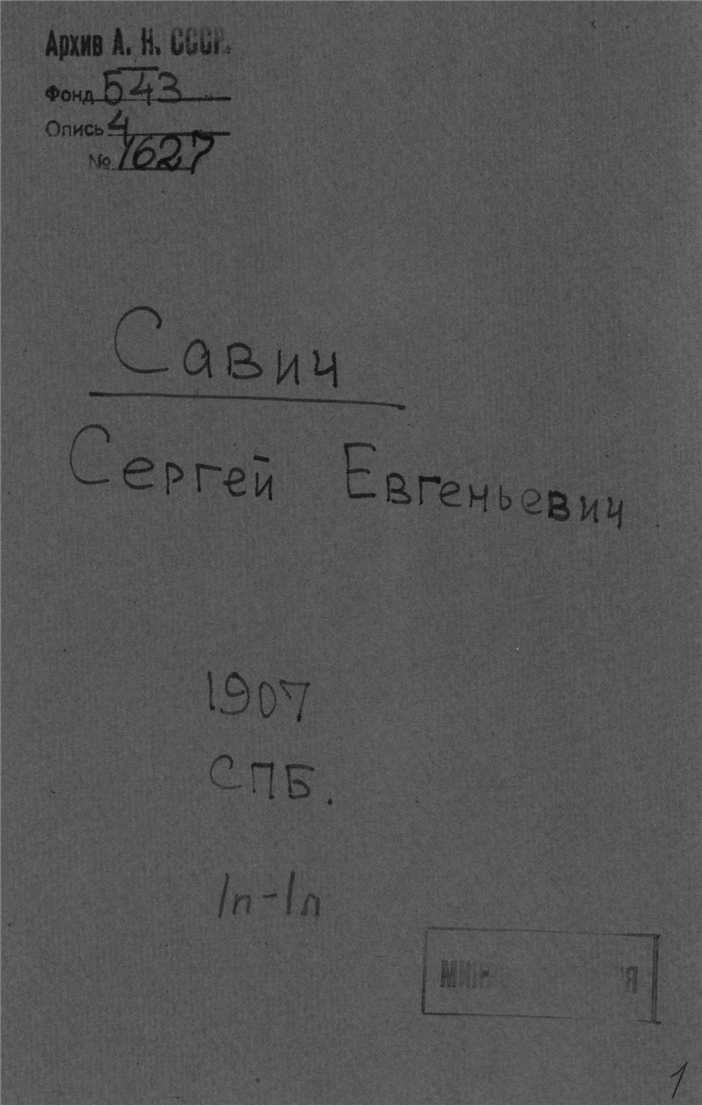 Архив А. Н. СССР.
Фонд 543
Опись 4
№ 1627
Савич
Сергей Евгеньевич
1907
СПБ.
1п-1л
1